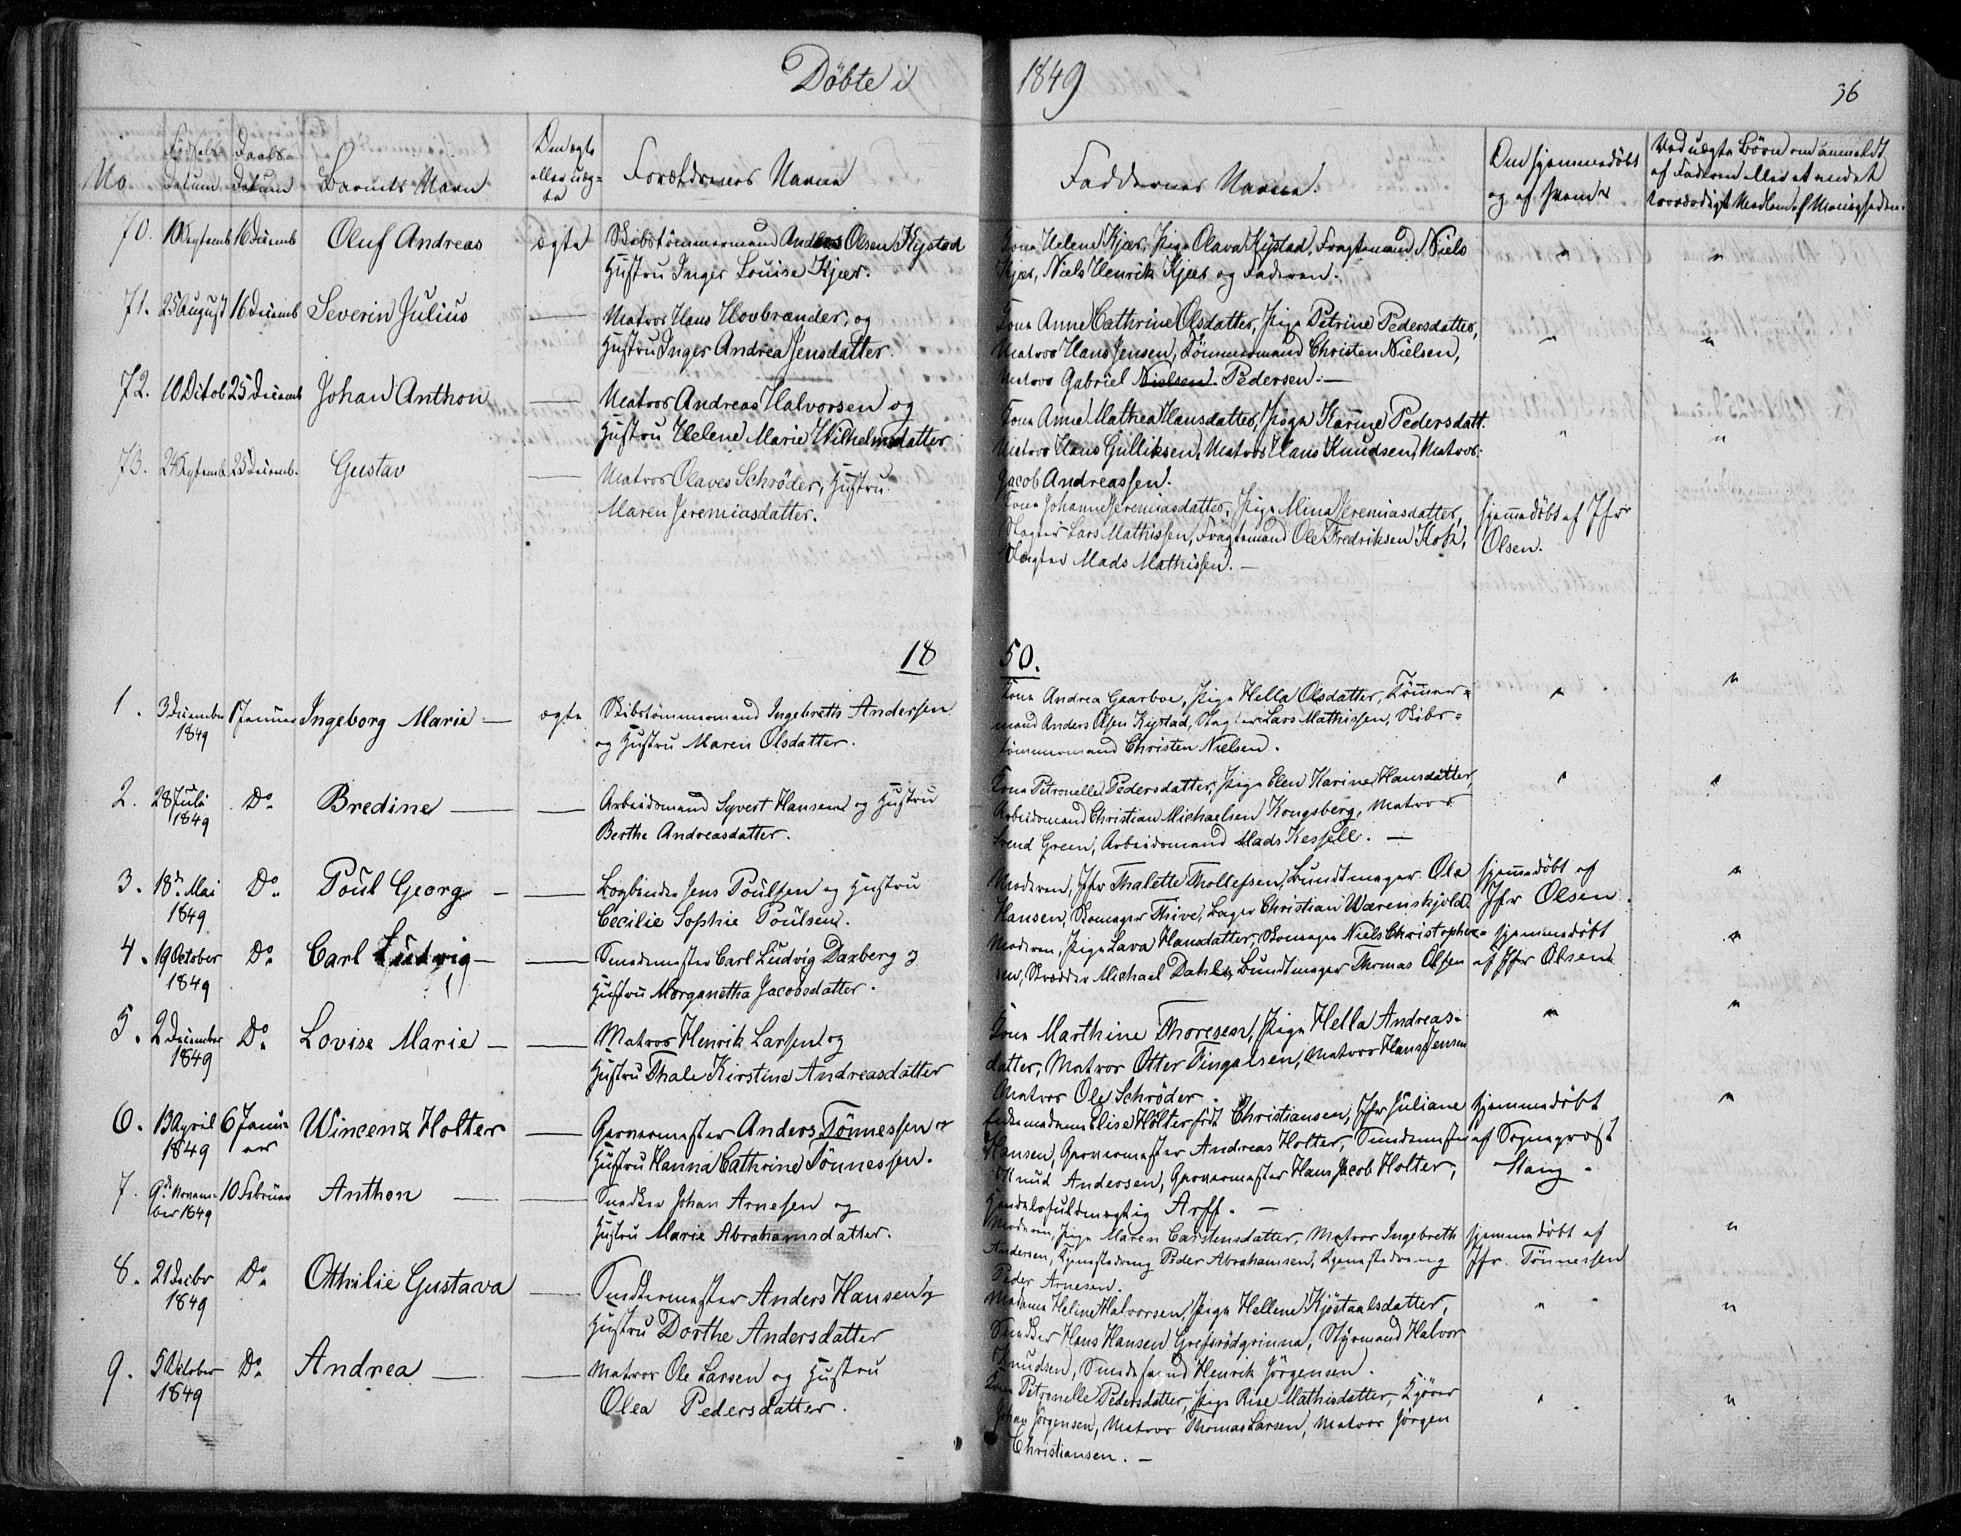 Döbte i 1849
36
No
Födsels Datum
Daabs- Datum
Barnets Navn
Om ægte eller uæg- te
Forældrenes Navne
Faddernes Navne.
Om hjemmedöbt og af hvem
Ved uægte Börn om anmeldt af Faderen eller et andet troværdigt Medlem af Menigheden.
70. Septemb 16 Decemb Oluf Andreas ægte Skibstömmermand Anders Olsen Kystad
Hustru Inger Louise Kjær.
Kone Helene Kjær, Pige Olava Kystad, Fragtemand Niels
Kjær, Niels Henrik Kjær og Faderen.
71. 25 August 16 Decemb Severin Julius — Matros Hans Hovbrander, og
Hustru Inger Andrea Jensdatter.
Kone Anne Cathrine Olsdatter, Pige Petrine Pedersdatter,
Matros Hans Jensen, Tömmermand Christen Nielsen,
Matros Gabriel Nielsen Pedersen. —
72. 10 Octob 25 Decemb Johan Anthon — Matros Andreas Halvorsen og
Hustru Helene Marie Wilhelmsdatter
Kone Anne Mathea Hansdatter, Pige Karine Pedersdatt.
Matros Hans Gulliksen, Matros Hans Knudsen, Matros
Jacob Andreassen.
73. 24 Septemb 25 Decemb. Gustav — Matros Olaves Schröder, Hustru
Maren Jeremiasdatter.
Kone Johanne Jeremiasdatter, Pige Mina Jeremiasdatter,
Slagter Lars Mathissen, Fragtemand Ole Fredriksen Kok,
Slagter Mads Mathissen. —
hjemmedöbt af Jfr
Olsen.
1850.
1. 3 December 1849 1 Januar Ingeborg Marie — ægte Skibstömmermand Ingebreth Andersen
og Hustru Maren Olsdatter.
Kone Andrea Gaarboe, Pige Hella Olsdatter, Tömmer=
mand Anders Olsen Kystad, Slagter Lars Mathissen, Skibs=
tömmermand Christen Nielsen.
2. 28 Juli 1849 Do Bredine — — Arbeidsmand Syvert Hansen og Hustru
Berthe Andreasdatter.
Kone Petronelle Pedersdatter, Pige Elen Karine Hansdatter,
Arbeidsmand Christian Michaelsen Kongsberg, Matros
Svend Green, Arbeidsmand Mads Kessell. —
3. 18de Mai 1849 Do Poul Georg — — Bogbinder Jens Poulsen og Hustru
Cecilie Sophie Poulsen.
Moderen, Jfr Thalette Thollefsen, Bundtmager Ole
Hansen, Skomager Thive, Bager Christian Wærenskjold.
hjemmedöbt af
Jfr Olsen.
4. 19 October 1849 Do Carl Ludvig — — Smedemester Carl Ludvig Daxberg og
Hustru Morganetha Jacobsdatter.
Moderen, Pige Lava Hansdatter, Skomager Niels Christopher=
sen, Skrædder Michael Dahl, Bundtmager Thomas Olsen
hjemmedöbt
af Jfr Olsen
5. 2 December 1849 Do Lovise Marie — — Matros Henrik Larsen og
Hustru Thale Kirstine Andreasdatter
Kone Marthine Thoresen, Pige Hella Andreas-
datter, Matros Otter Fingalsen, Matros Hans Jensen
Matros Ole Schröder.
6. 13 April 1849 6 Janu- ar Wincenz Holter — Garvermester Anders Tönnessen og
Hustru Hanna Cathrine Tönnessen.
Enkemadam Elise Holter född Christiansen, Jfr Juliane
Hansen, Garvermester Andreas Holter, Smedemester
Knud Andersen, Garvermester Hans Jacob Holter,
Handelsfuldmægtig Arff. —
hjemmedöbt
af Sogneprest
Stang.
7. 9de Novem- ber 1849 10 Februar Anthon — — Snedker Johan Arnesen og
Hustru Marie Abrahamsdatter.
Moderen, Pige Maren Carstensdatter, Matros Ingebreth
Andersen, Tjenestedreng Peder Abrahamsen, Tjenestedreng
Peder Arnesen.
hjemmedöbt af
Jfr. Tönnessen
8. 21 Decbr 1849 Do Otthilie Gustava — Snedkermester Anders Hansen og
Hustru Dorthe Andersdatter
Madame Heline Halvorsen, Pige Hellene Kjöstaalsdatter,
Snedker Hans Hansen Grefsrödgrinna, Styrmand Halvor
Knudsen, Smedesvend Henrik Jörgensen.
9. 5 October 1849 Do Andrea — — Matros Ole Larsen og Hustru
Olea Pedersdatter.
Kone Petronelle Pedersdatter, Pige Rise Mathisdatter,
Johan Jörgensen, Matros Thomas Larsen, Matros Jörgen
Christiansen. —